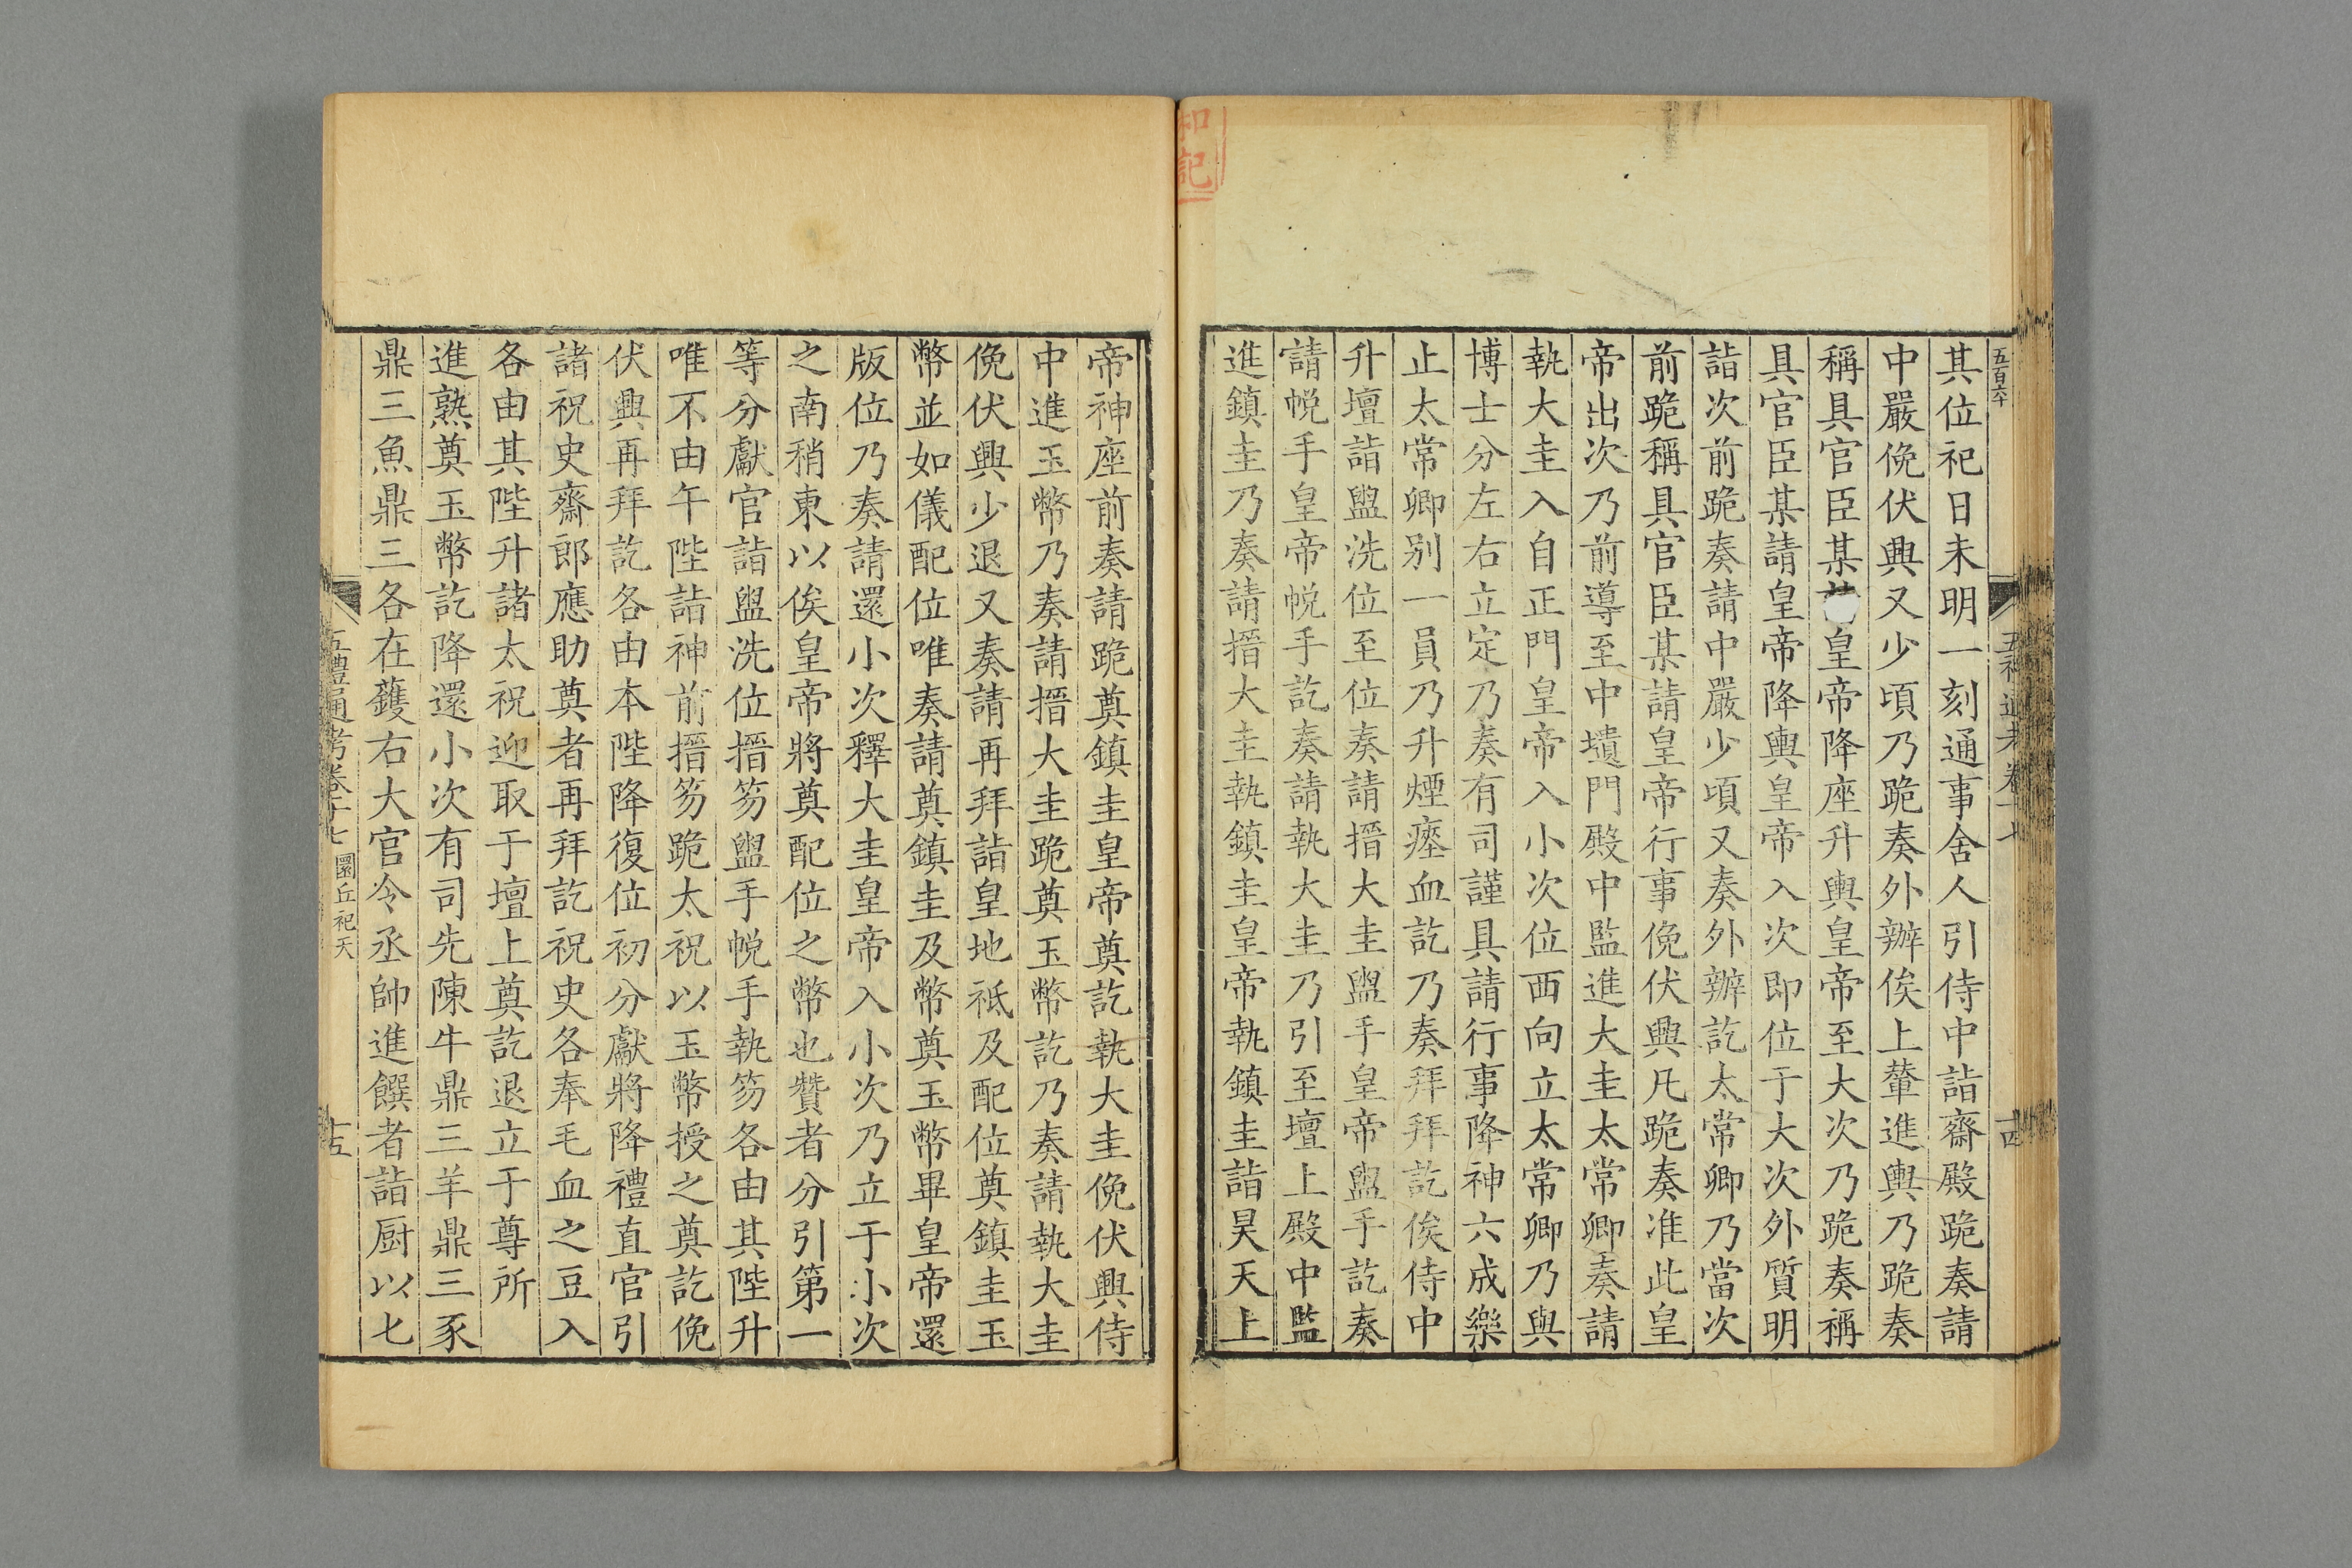 五百六十
五禮通考卷十七
十四
其位祀日未明一刻通事舍人引侍中詣齋殿跪奏請
中嚴俛伏興又少頃乃跪奏外辦俟上輦進輿乃跪奏
稱具官臣某皇帝降座升輿皇帝至大次乃跪奏稱
具官臣某請皇帝降輿皇帝入次即位于大次外質明
詣次前跪奏請中嚴少頃又奏外辦訖太常卿乃當次
前跪稱具官臣某請皇帝行事俛伏興凡跪奏准此皇
帝出次乃前導至中壝門殿中監進大圭太常卿奏請
執大圭入自正門皇帝入小次位西向立太常卿乃與
博士分左右立定乃奏有司謹具請行事降神六成樂
止太常卿别一員乃升煙瘞血訖乃奏拜拜訖俟侍中
升壇詣盥洗位至位奏請搢大圭盥手皇帝盥手訖奏
請帨手皇帝帨手訖奏請執大圭乃引至壇上殿中監
進鎮圭乃奏請搢大圭執鎮圭皇帝執鎮圭詣昊天上
和記
帝神座前奏請跪奠鎮圭皇帝奠訖執大圭俛伏興侍
中進玉幣乃奏請搢大圭跪奠玉幣訖乃奏請執大圭
俛伏興少退又奏請再拜詣皇地祇及配位奠鎮圭玉
幣並如儀配位唯奏請奠鎮圭及幣奠玉幣畢皇帝還
版位乃奏請還小次釋大圭皇帝入小次乃立于小次
之南稍東以俟皇帝將奠配位之幣也贊者分引第一
等分獻官詣盥洗位搢笏盥手帨手執笏各由其陛升
唯不由午陛詣神前搢笏跪太祝以玉幣授之奠訖俛
伏興再拜訖各由本陛降復位初分獻將降禮直官引
諸祝史齋郎應助奠者再拜訖祝史各奉毛血之豆入
各由其陛升諸太祝迎取于壇上奠訖退立于尊所
進熟奠玉幣訖降還小次有司先陳牛鼎三羊鼎三豕
鼎三魚鼎三各在鑊右大官令丞帥進饌者詣厨以匕
五禮通考卷十七 圜丘祀天
十五